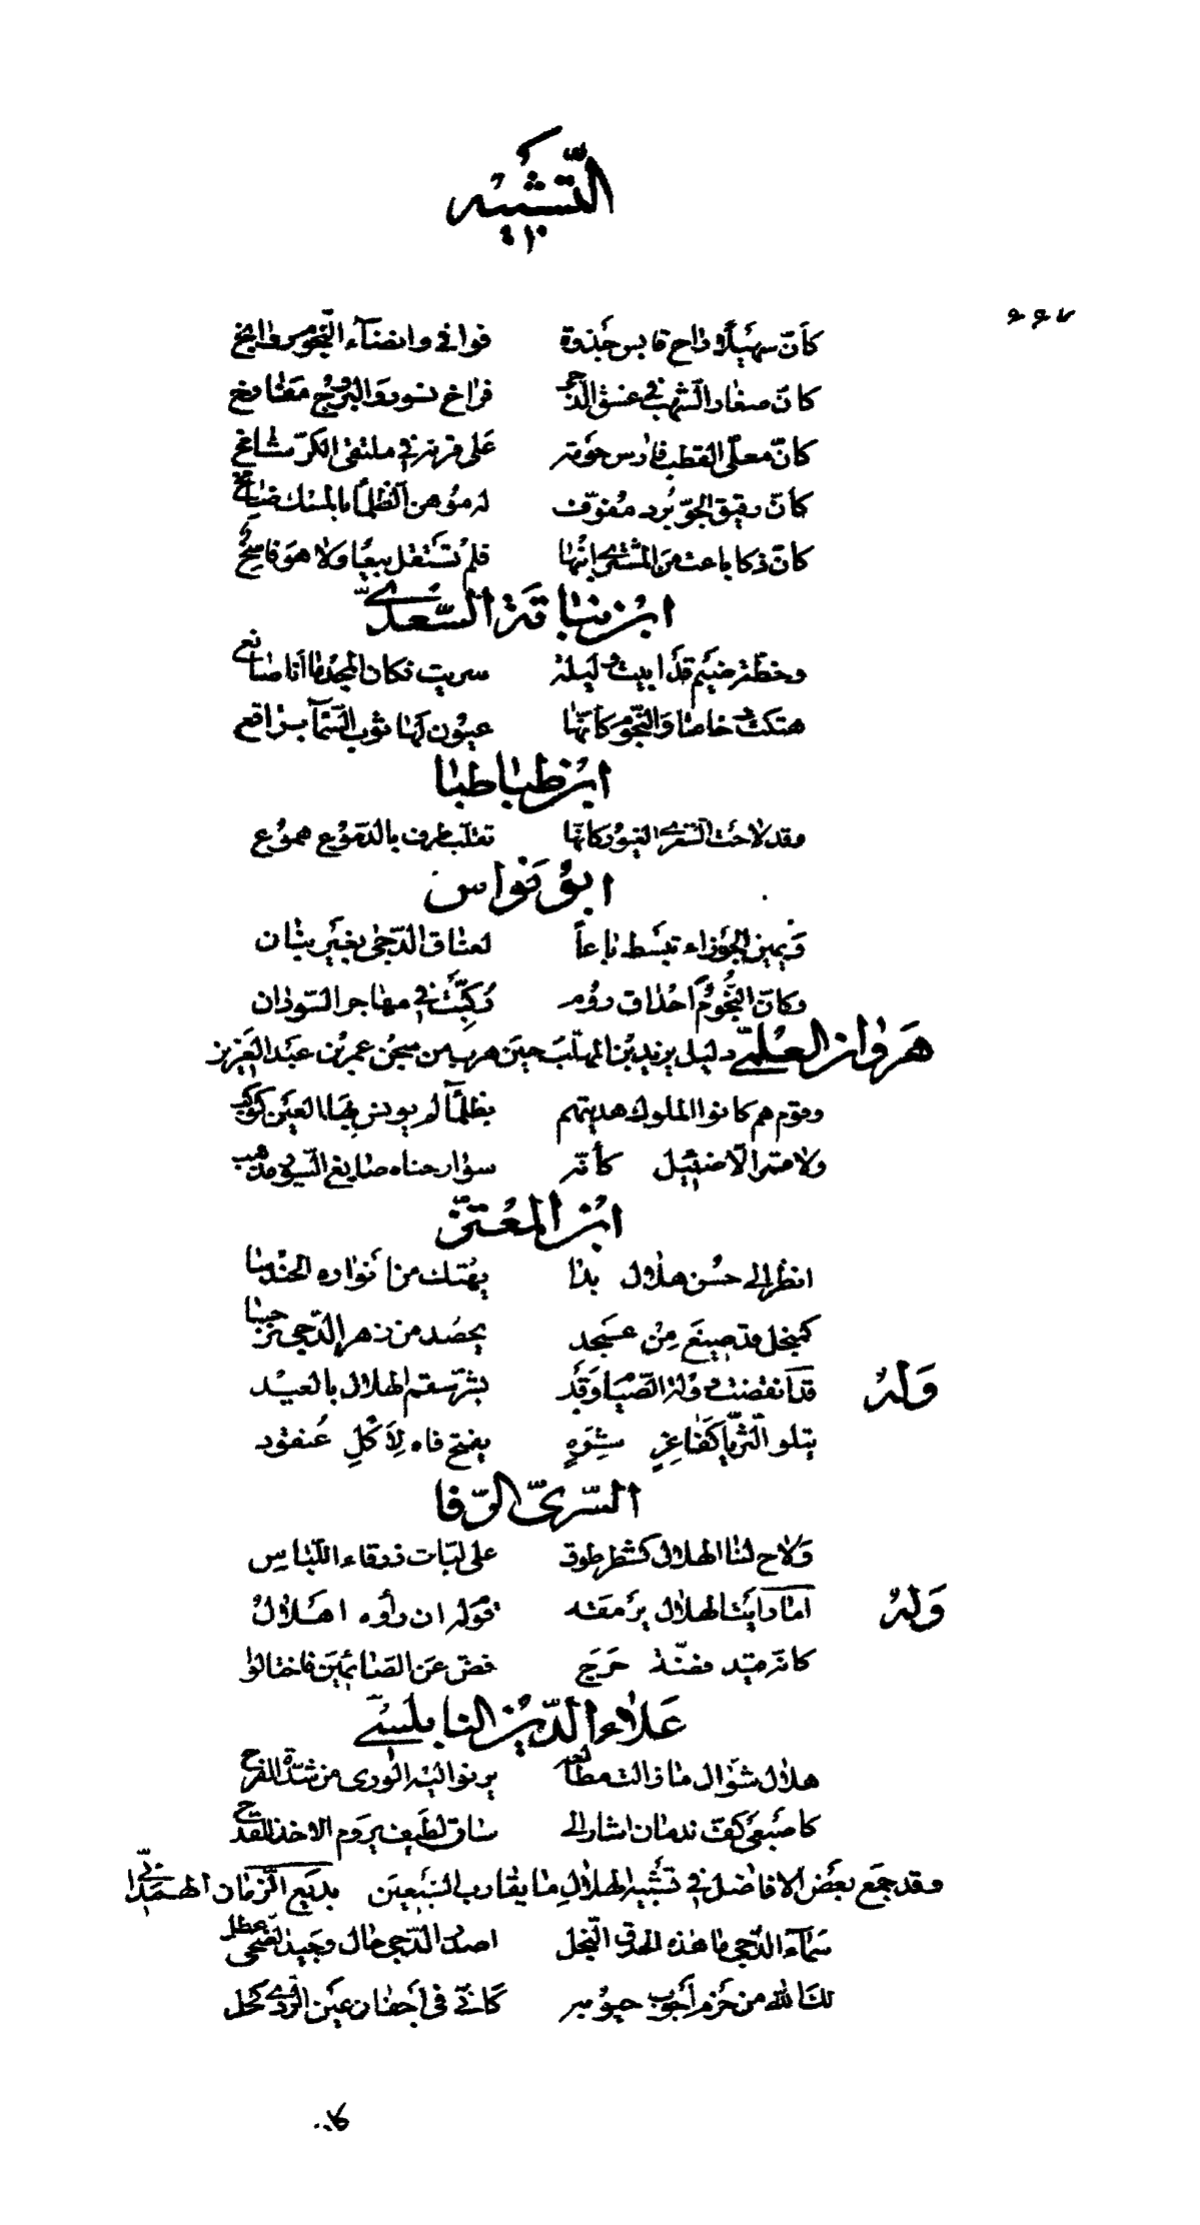 التّشبيه
كأنّ سهيلًا راح قابس جذوة فوافى وانضآء النّجوم روابخ
كانّ صغار الشّهب في غسق الدّجى فراخ نسور والبروج مفارخ
كانّ معلّى القطب فارس حومة على قرنه في ملتقى الكرّ شامخ
كأنّ رقيق الجوّ برد مفوّف له من وهن الظلمآ بالمسك ضامخ
كانّ ذكا باعت من المشتري ابنها فلم تستقل بيعا ولا هو فاسخ
ابن نباتة السّعديّ
وخطّة ضيم قد ابيت وليلة سريت فكان المجد ما أنا صانع
هتكت دجاها والنّجوم كأنّها عيون لها ثوب السّمآ براقع
ابن طباطبا
وقد لاحت الشعرى العبور كانّها تقلّب طرف بالدّموع هموع
ابو نواس
ويمين الجوزاء تبسط باعاً لعناق الدّجى بغير بنان
وكانّ النّجوم احداق روم ركّبت في مهاجر السّودان
هروان العلمىّ دليل يزيد بن المهلّب حين هرب من سجن عمر بن عبد العزيز
وقوم هم كانوا الملوك هديتهم بظلمآ لم يونس بها العين كوكب
ولا قمر الّا ضئيل كأنّه سوار حناه صايغ السّور مذهب
ابن المعتزّ
انظر إلى حسن هلال بدا يهتك من أنواره الحندسا
كمنجل قد صيغ من عسجد يحصد من زهر الدّجى نرجسا
وله قد انقضت دولة الصّيا وقد بشّر سقم الهلال بالعيد
يتلو الثّريّا كفاغرٍ شرهٍ يفتح فاه لأكل عنقود
السّرىّ الرّفا
ولاح لنا الهلال كشطر طوق على لبّات زرقاء اللّباس
وله اما رايت الهلال يرمقه قوم له ان رأوه اهلال
كانّه قيد فضّة حرج فضّ عن الصّائمين فاختالوا
علاء الدّين النابلسيّ
هلال شوّال ما زالت مطالعه يرنو اليه الورى من شدّة الفرح
كاصبعى كفّ ندمان اشار الى ساق لطيف يروم الاخذ للقدح
وقد جمع بعض الافاضل في تشبيه الهلال ما يقارب السّبعين بديع الزّمان الهمدانيّ
سمآء الدّجى ما هذه الحدق النّجل اصدر الدّجى حال وجيد الضّحى عطل
لك الله من عزم أجوب جيوبه كانّي في أجفان عين الرّدى كحل